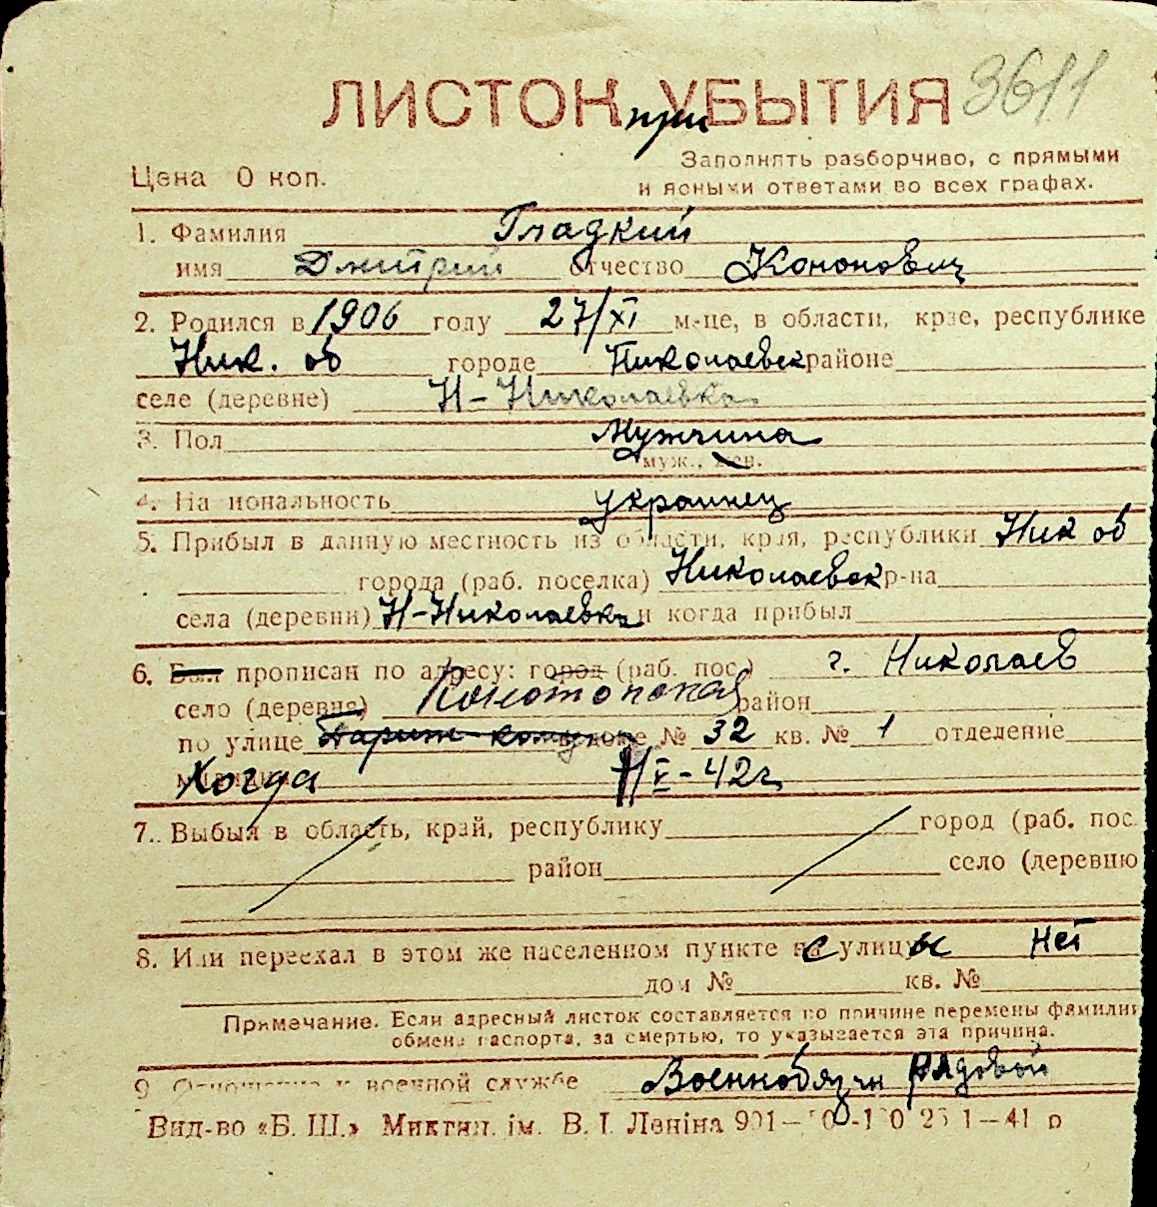 ЛИСТОК при УБЫТИЯ 3611
Цена 0 коп.
Заполнять разборчиво, с прямыми
и ясными ответами во всех графах.
1. Фамилия Гладкий
имя Дмитрий отчество Кононович
2. Родился в 1906 году 27/XI м-це, в области, крае, республике
Ник. об городе Николаевск районе
селе (деревне) Н-Николаевка
3. Пол Мужчина
муж., жен.
4. На иональность украинец
5. Прибыл в данную местность из области, края, республики Ник об
города (раб. поселка) Николаевск р-на
села (деревни) Н-Николаевка и когда прибыл
6. Был прописан по адресу: город (раб. пос.) г. Николаев
село (деревня) Конотопская район
по улице Париж. комуны доме № 32 кв. № 1 отделение
Когда V-42г
7. Выбыл в область, край, республику город (раб. пос.
район село (деревню
8. Или переехал в этом же населенном пункте с улицы нет
дом № кв. №
Примечание. Если адресный листок составляется по причине перемены фамилии
обмена паспорта, за смертью, то указывается эта причина.
9 Отношение к военной службе Военнобязан рядовой
Вид-во «Б. Ш.» Миктип. ім. В. І. Леніна